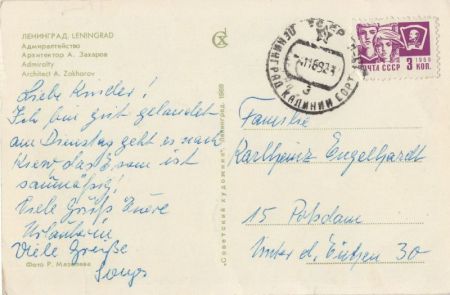 ЛЕНИНГРАД. LENINGRAD
Адмиралтейство
Архитектор А. Захаров
Admiralty
Architect A. Zakharov
Liebe Kinder!
Ich bin gut gelandet
am Dienstag geht es nach
Kiew. ist
saumäßig!
Viele Grüße Eure
Urlauberin
Viele Grüße
Фото Р. Мазелева
"Советский художник". Ленинград. 1969
ЛЕНИНГРАД
ПОЧТА СССР 3 КОП.
1966
Familie
Karlheinz Engelhardt
15 Potsdam
Unter d. Eichen 30